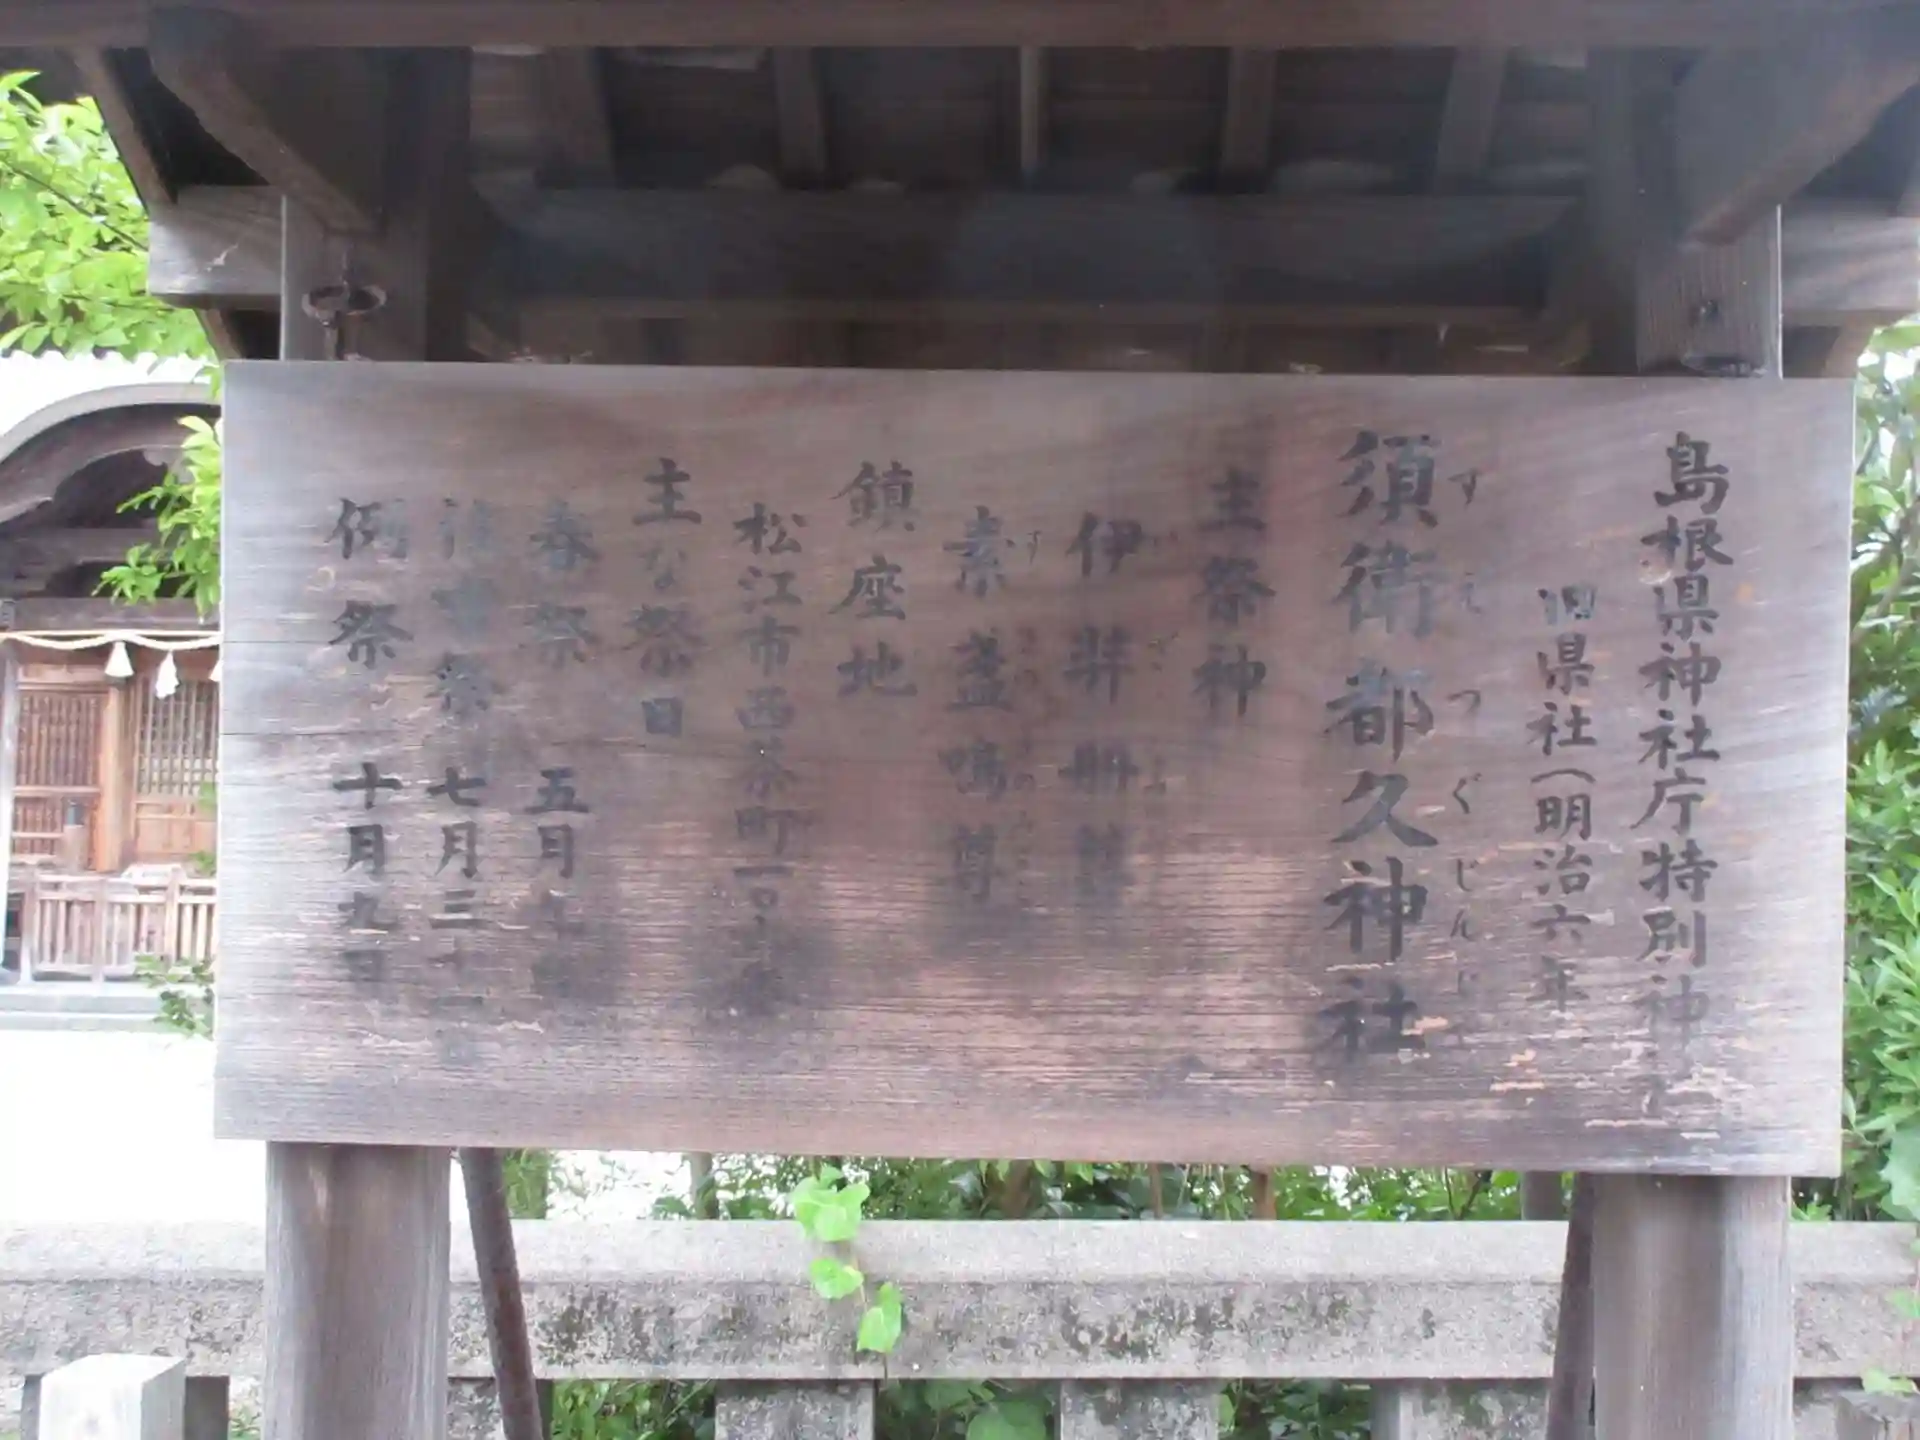 島根県神社庁特別神社
旧県社(明治六年
すえつぐじんじ
須衛都久神社
主祭神
伊弉冊尊
素盞嗚尊
鎮座地
松江市西茶町一〇
主な祭日
春祭 五月
祭 七月三十一
例祭 十月九日